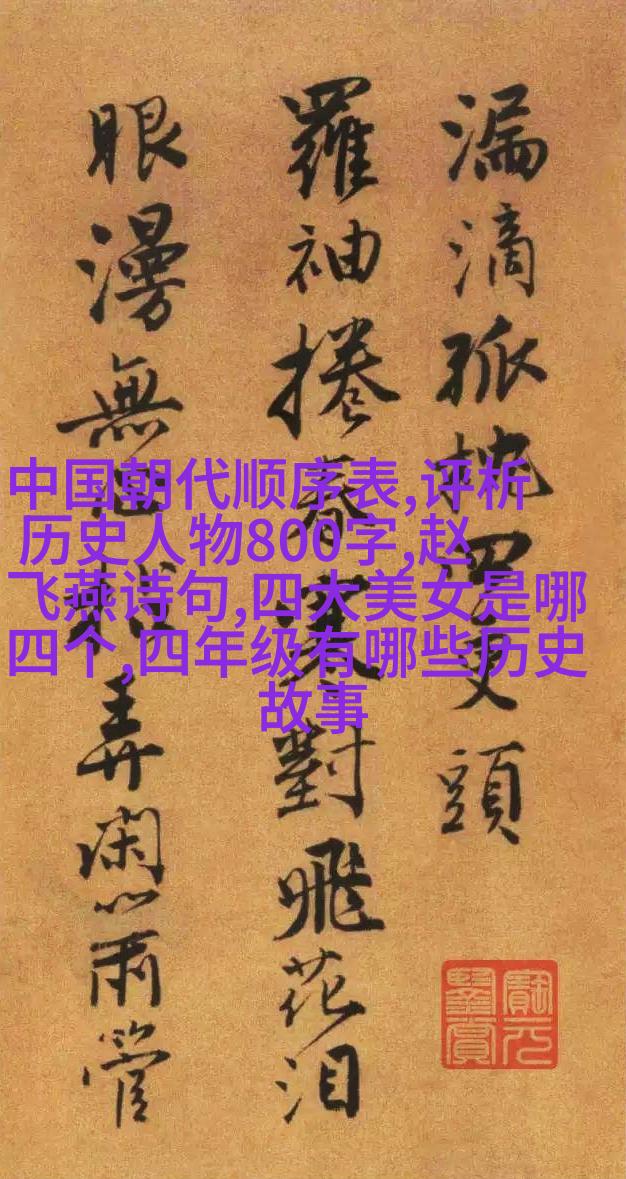 漏滴孤枕四更頭
羅袖捲春寒對飛花泪
眼漫無弄閑心兩管
中国朝代顺序表,评析
历史人物800字,赵
飞燕诗句,四大美女是哪
四个,四年级有哪些历史
故事